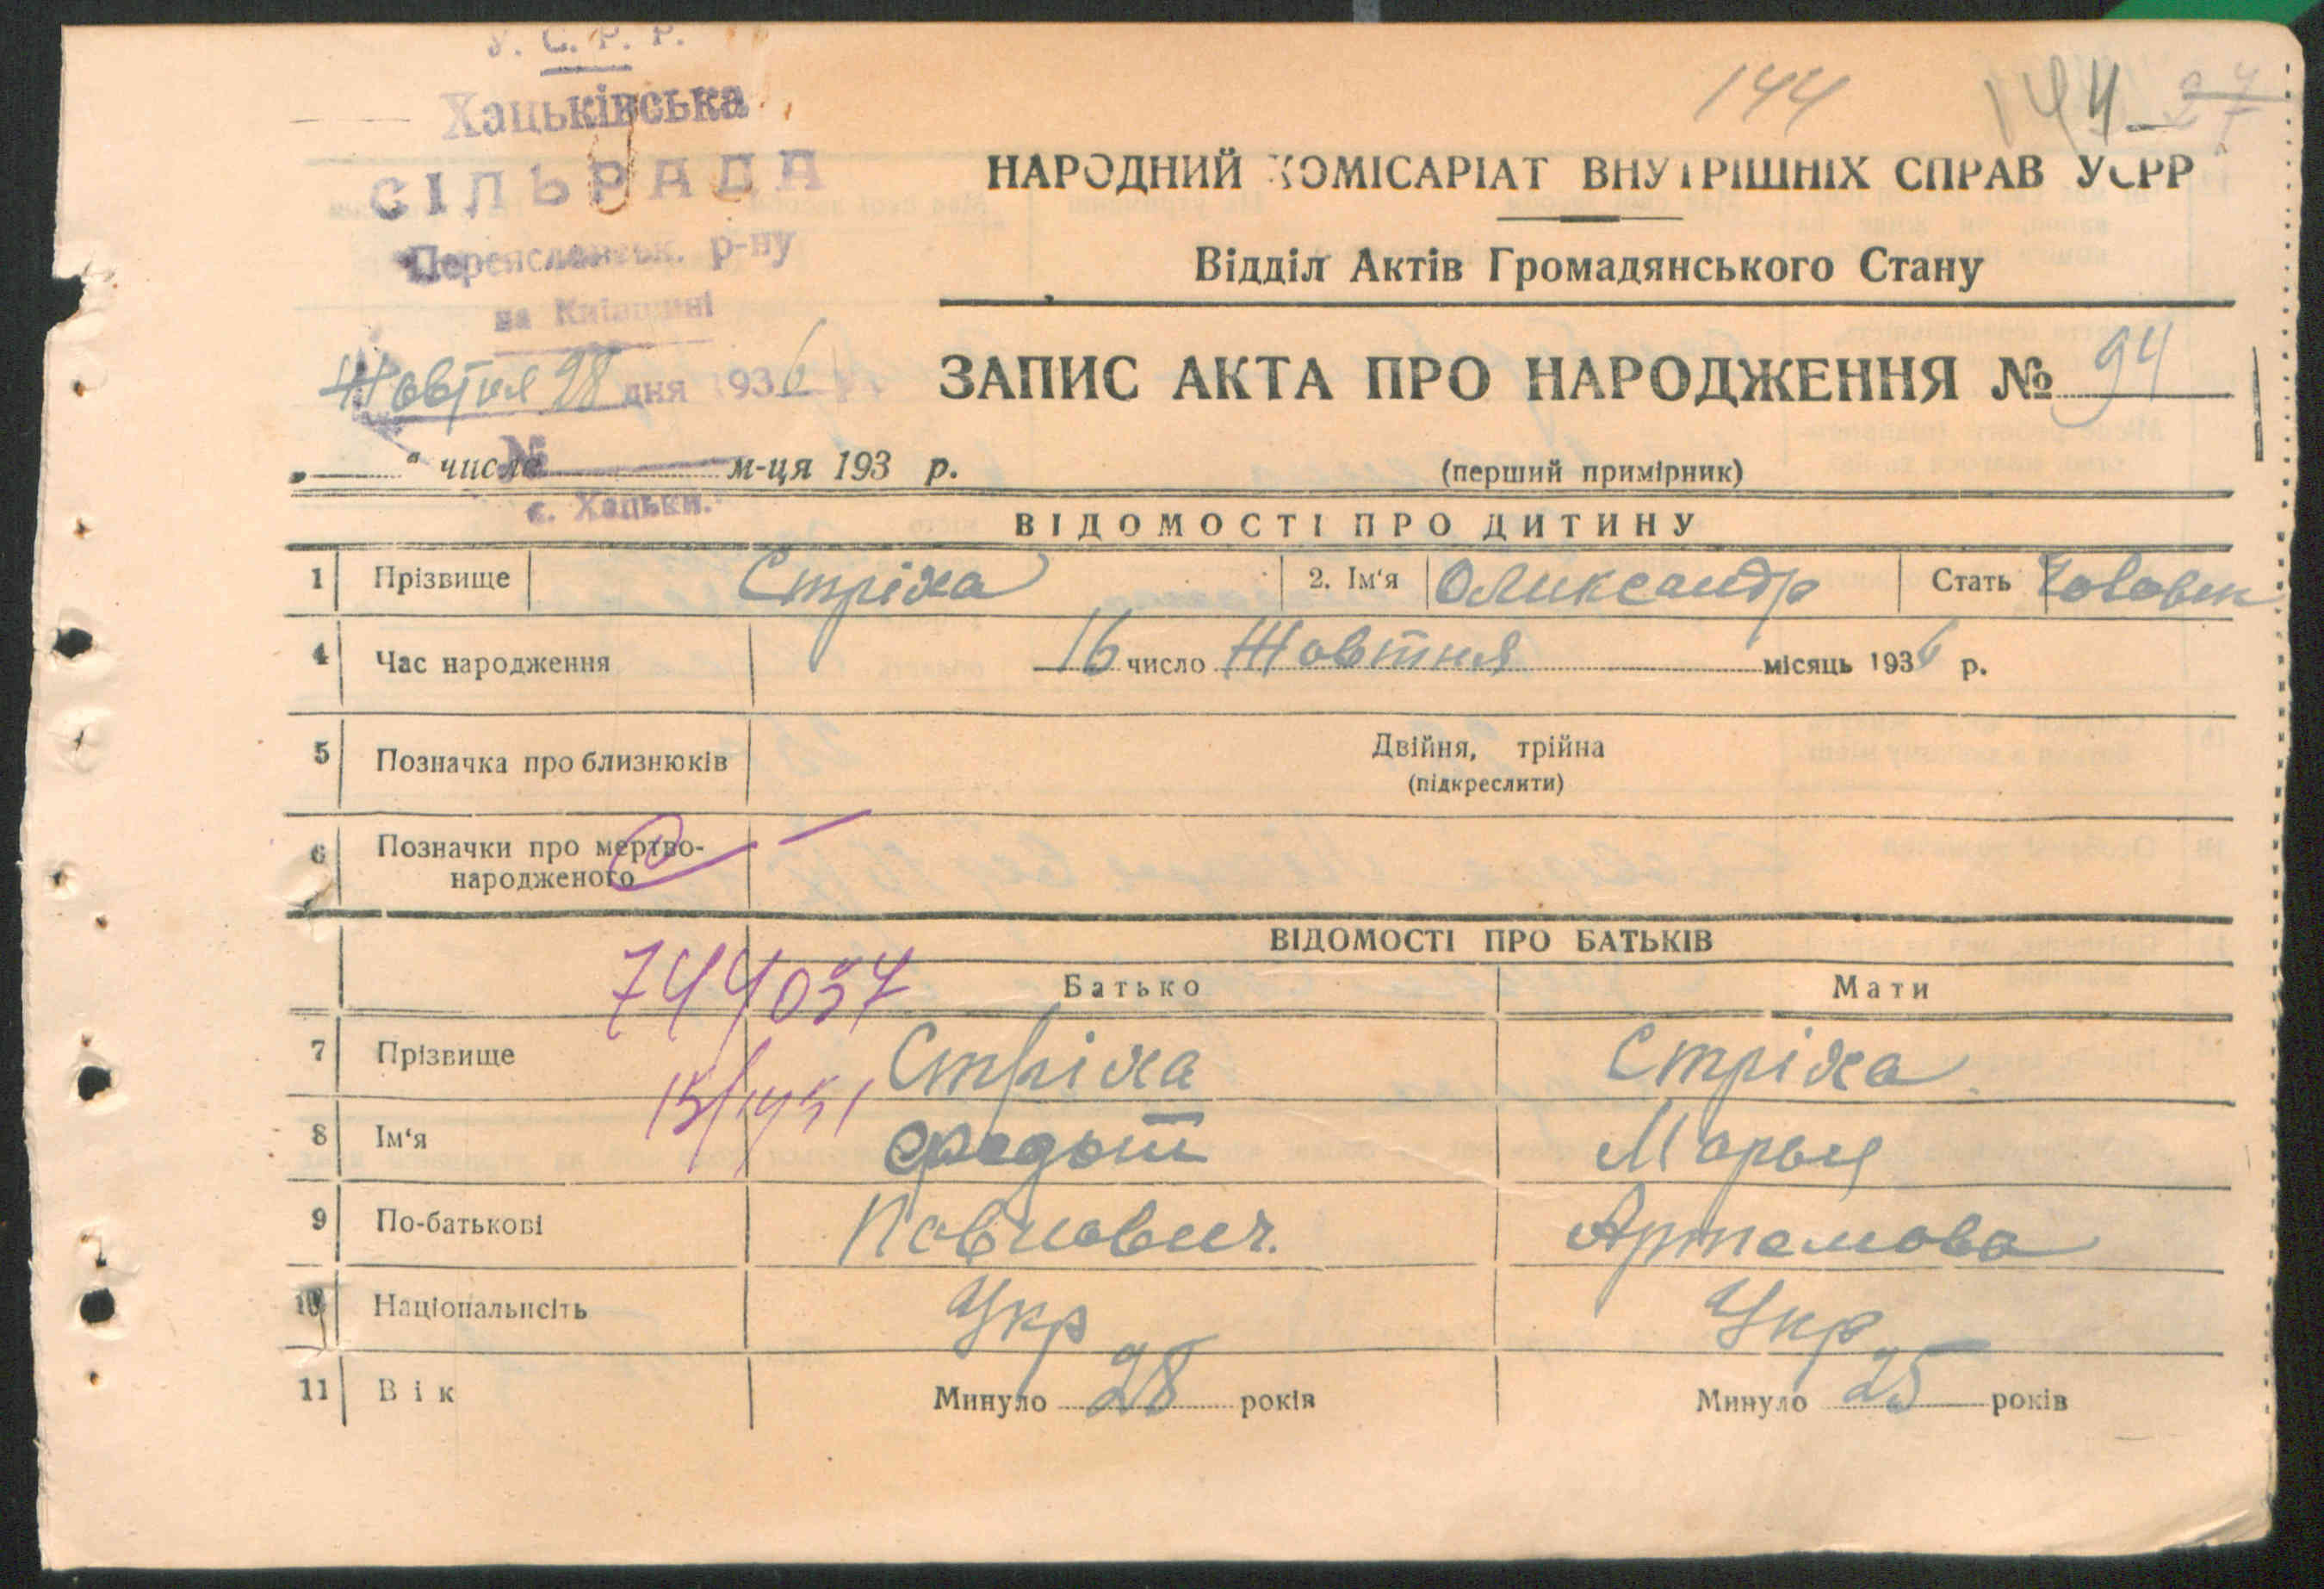 У. С. Р. Р.
Хацьківська
СІЛЬРАДА
р-ну
на Київщині
Жовтня 28 дня 1936
№
с. Хацьки.
144
144
НАРОДНИЙ КОМІСАРІАТ ВНУТРІШНІХ СПРАВ УСРР
Відділ Актів Громадянського Стану
ЗАПИС АКТА ПРО НАРОДЖЕННЯ № 94
„ “ числа м-ця 193 р.
(перший примірник)
ВІДОМОСТІ ПРО ДИТИНУ
1 Прізвище Стріха 2. Ім‘я Олександр Стать Чоловік
4 Час народження 16 число Жовтня місяць 1936 р.
5 Позначка про близнюків Двійня, трійна
(підкреслити)
6 Позначки про мертво-
народженого
ВІДОМОСТІ ПРО БАТЬКІВ
Батько Мати
744037
7 Прізвище Стріха Стріха
8 Ім‘я Федот Марья
9 По-батькові Павлович. Артемова
10 Національнсіть Укр Укр
11 Вік Минуло 28 років Минуло 25 років